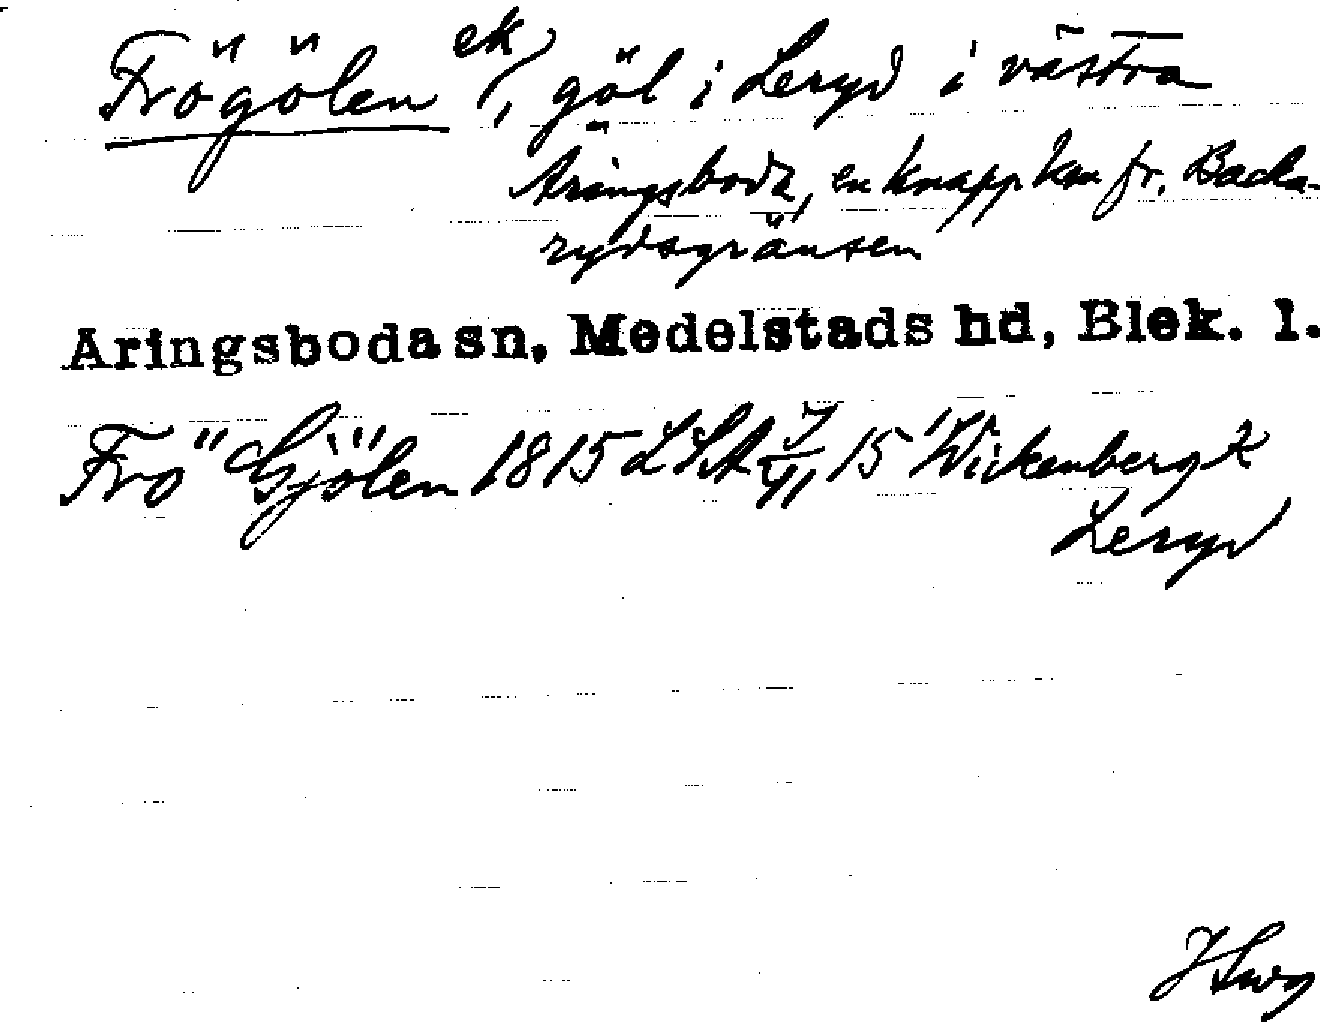 Frögölen ek), göl i Leryd i västra
Aringsboda, en knapp km fr. Backa-
rydsgränsen
Aringsboda sn, Medelstads hd, Blek. l.
Frö Gjölen 1815 LSA 7/11 15 Wickenberg k
Leryd